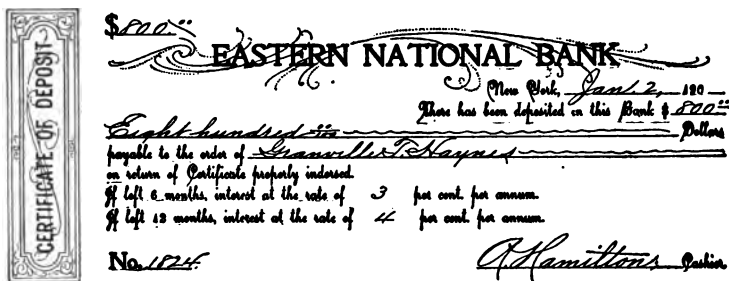 CERTIFICATE OF DEPOSIT
$800.00
EASTERN NATIONAL BANK
New York, Jan. 2, 190
There has been deposited in this Bank $ 800.00
Eight hundred Dollars
payable to the order of Granville T. Haynes
on return of Certificate properly indorsed.
If left 6 months, interest at the rate of 3 per cent. per annum.
If left 12 months, interest at the rate of 4 per cent. per annum.
No. 1824. A Hamiltons Cashier